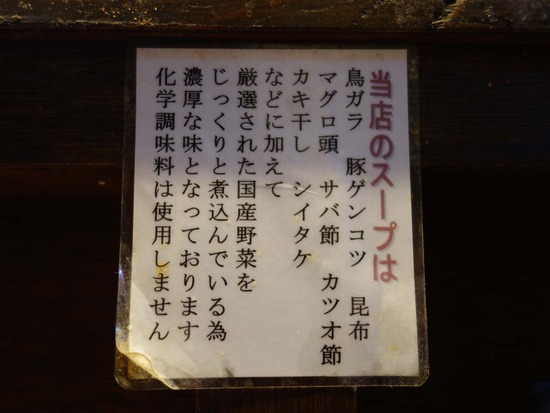 当店のスープは
鳥ガラ 豚ゲンコツ 昆布
マグロ頭 サバ節 カツオ節
カキ干し シイタケ
などに加えて
厳選された国産野菜を
じっくりと煮込んでいる為
濃厚な味となっております
化学調味料は使用しません